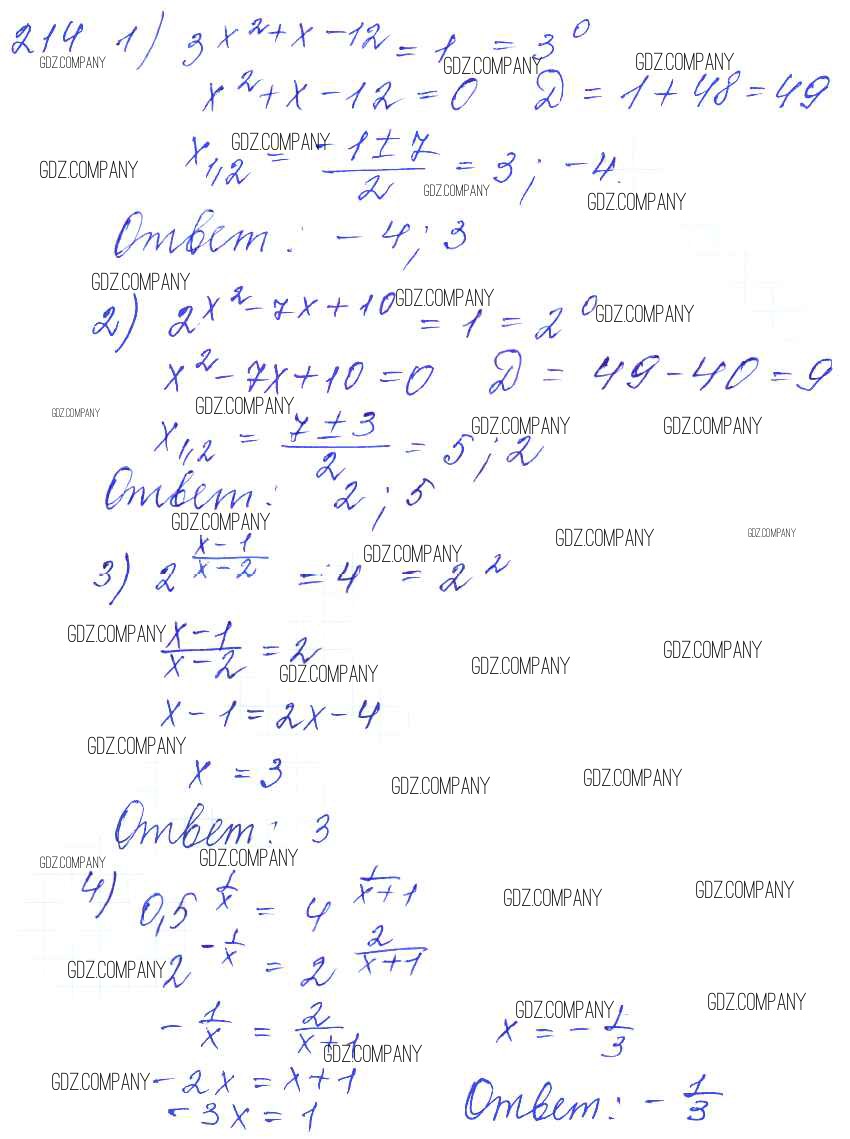 214 1) 3^(x²+x-12) = 1 = 3⁰
GDZ.COMPANY GDZ.COMPANY GDZ.COMPANY
x²+x-12=0 D = 1+48=49
GDZ.COMPANY
x₁,₂ = (-1±7)/2 = 3; -4.
GDZ.COMPANY GDZ.COMPANY GDZ.COMPANY
Ответ: -4; 3
GDZ.COMPANY GDZ.COMPANY
2) 2^(x²-7x+10) = 1 = 2⁰
GDZ.COMPANY
x²-7x+10=0 D = 49-40=9
GDZ.COMPANY GDZ.COMPANY
x₁,₂ = (7±3)/2 = 5; 2
GDZ.COMPANY GDZ.COMPANY
Ответ: 2; 5
GDZ.COMPANY GDZ.COMPANY GDZ.COMPANY GDZ.COMPANY
3) 2^((x-1)/(x-2)) = 4 = 2²
GDZ.COMPANY
(x-1)/(x-2) = 2
GDZ.COMPANY GDZ.COMPANY GDZ.COMPANY
x-1=2x-4
GDZ.COMPANY
x = 3
GDZ.COMPANY GDZ.COMPANY
Ответ: 3
GDZ.COMPANY GDZ.COMPANY
4) 0,5^(1/x) = 4^(1/(x+1))
GDZ.COMPANY GDZ.COMPANY
2^(-1/x) = 2^(2/(x+1))
GDZ.COMPANY
-1/x = 2/(x+1)
GDZ.COMPANY GDZ.COMPANY GDZ.COMPANY
-2x = x+1
GDZ.COMPANY
-3x = 1
x = -1/3
Ответ: -1/3